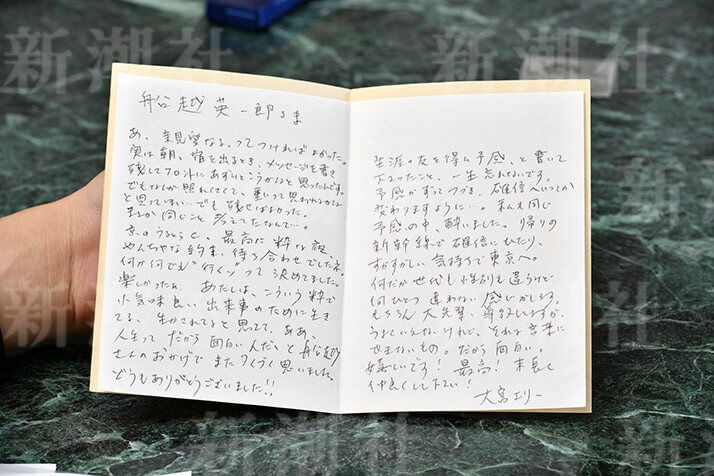 船越英一郎さま
あ、親愛なる、ってつければよかった。
実は朝、宿を出るとき、メッセージを書き
残してフロントにあずけとこうかなと思ったんです。
でもなんか照れくさくて、重いって思われるかな
と思って でも残せばよかった。
まさか同じこと考えてたなんて…。
最高に粋な夜、
やんちゃな約束、待ち合わせでしたネ。
何が何でも"行くゾ"って決めてました。
楽しかったぁ。あたしは、こういう粋で
小気味良い出来事のために生き
てる、生かされてると思ってて、ああ、
人生って だから面白いんだ、と船越
さんのおかげで またつくづく思いました。
どうもありがとうございました!!
生涯の友を得た予感、と書いて
下さったこと、一生忘れないです。
予感がずっとつづき、確信へいつしか
変わりますように…。私も同じ
予感の中、酔いました。帰りの
新幹線で確信にひたり、
すがすがしい気持ちで東京へ。
何だか世代も性別も違うけど
何ひとつ違わない感じがしちゃう。
もちろん大先輩、尊敬してますが、
うまくいえないけれど、それは言葉に
できないもの。だから面白い!
嬉しいです!最高!末長く
仲良くして下さい!
大宮エリー
新潮社